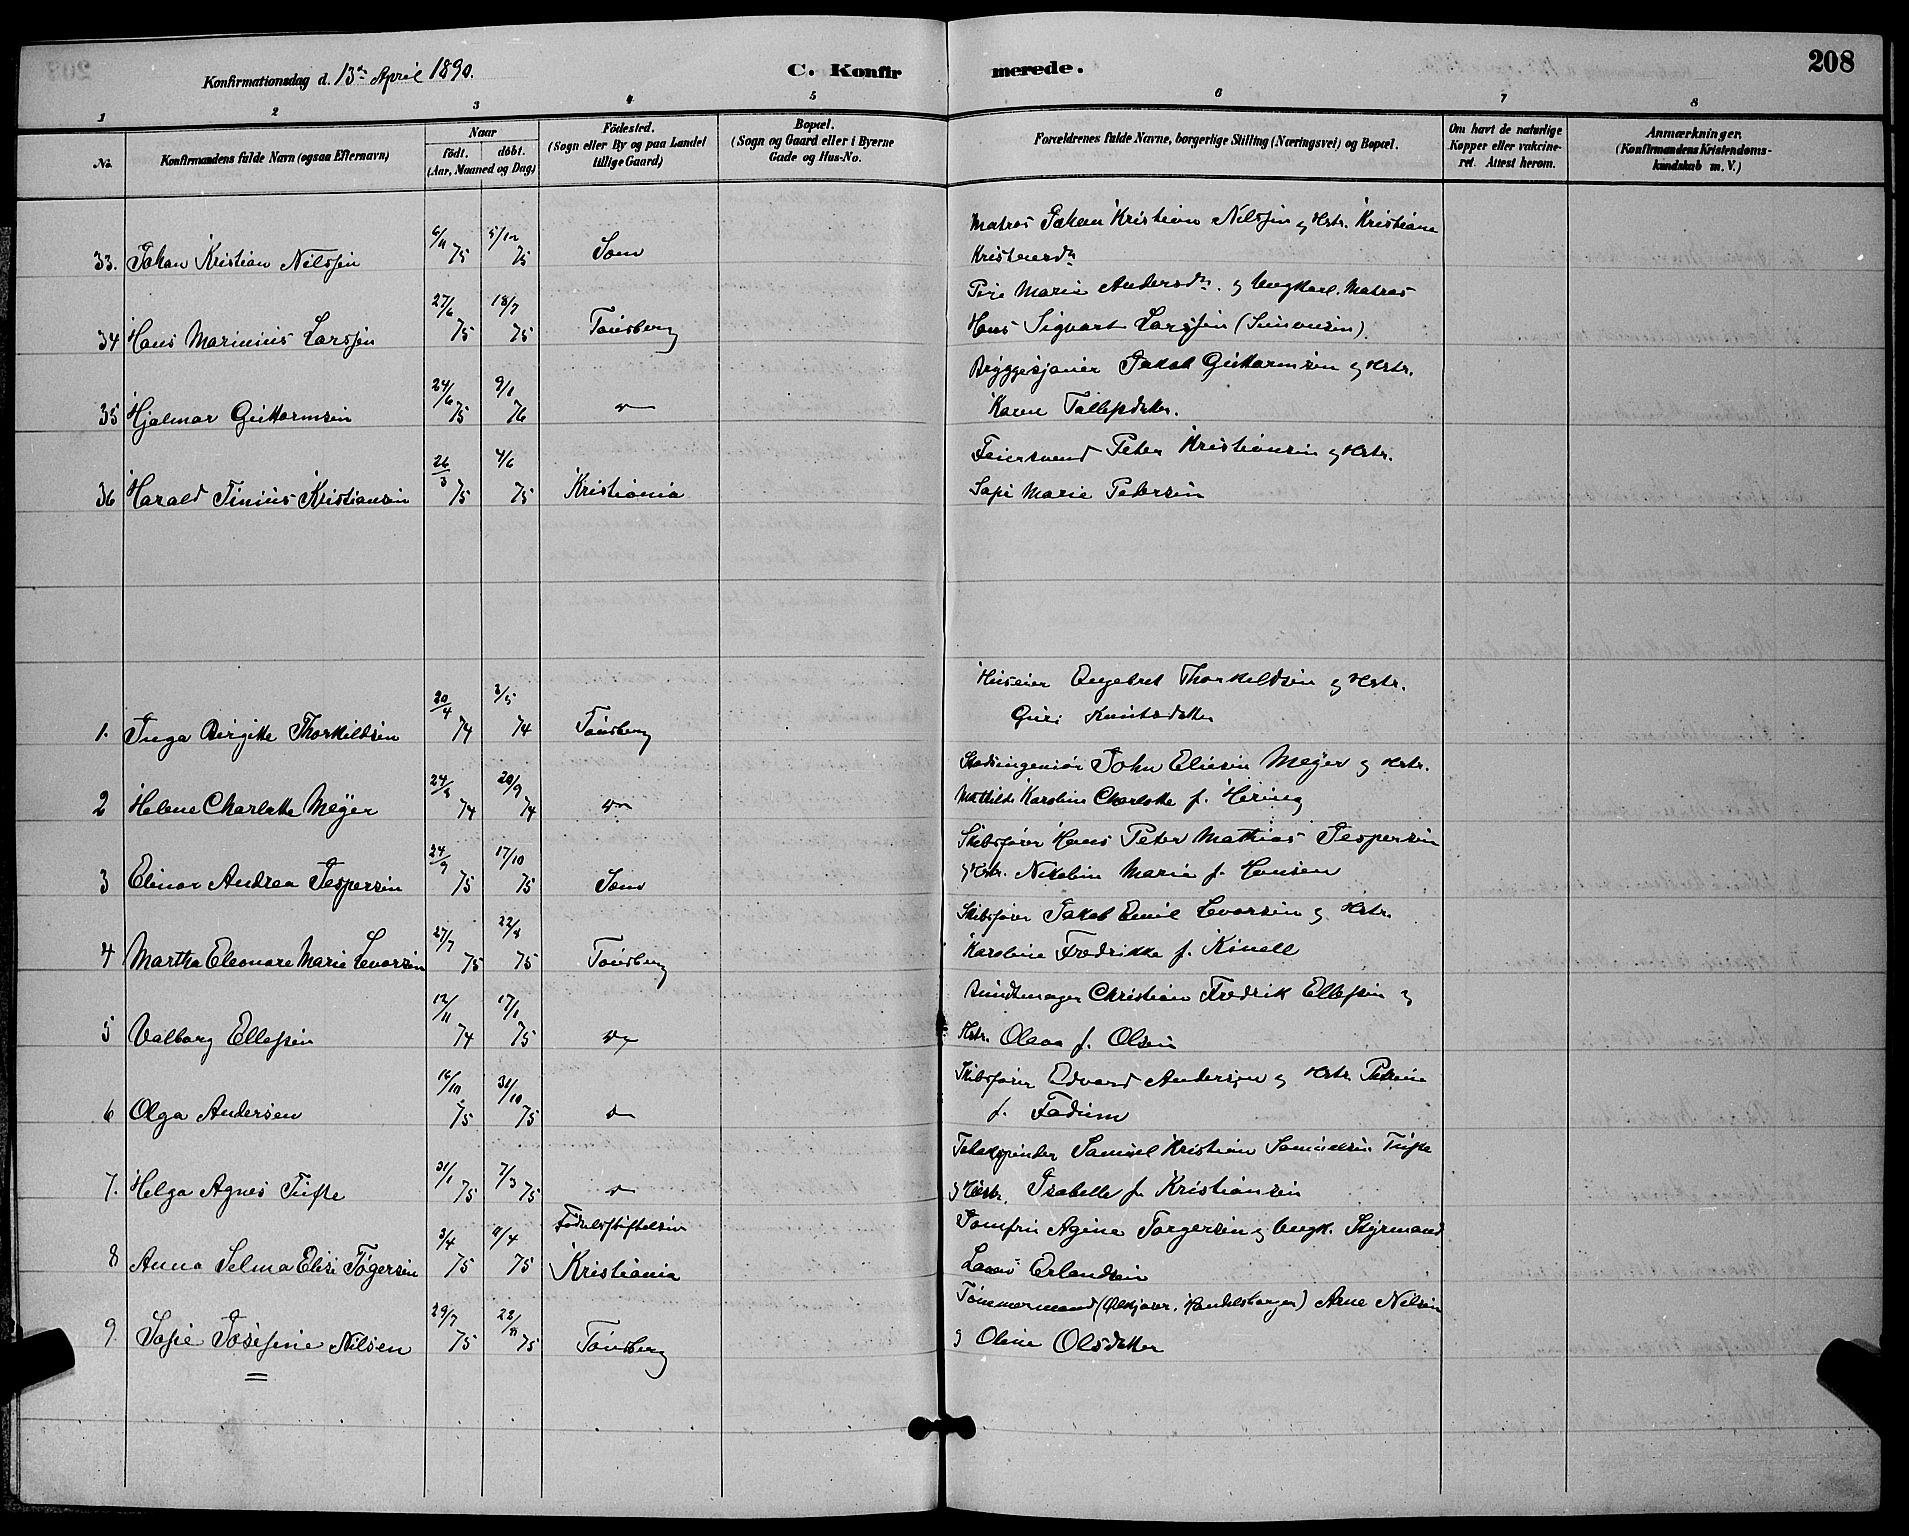 Konfirmationsdag d. 13de April 1890.
C. Konfirmerede.
208
1 2 3 4 5 6 7 8
No.
Konfirmandens fulde Navn (ogsaa Efternavn)
Naar
født. døbt.
(Aar, Maaned og Dag)
Fødested.
(Sogn eller By og paa Landet
tillige Gaard)
Bopæl.
(Sogn og Gaard eller i Byerne
Gade og Hus-No.
Forældrenes fulde Navne, borgerlige Stilling (Næringsvei) og Bopæl.
Om havt de naturlige
Kopper eller vakcine-
ret. Attest herom.
Anmærkninger.
(Konfirmandens Kristendoms-
kundskab m. V.)
33. Johan Kristian Nilssen 6/11 75 5/12 75 Sem Matros Johan Kristian Nilssen og Hstr. Kristiane
Kristensdr
34 Hans Marinius Larssen 27/6 75 18/7 75 Tønsberg Pige Marie Andersdr. og Ungkarl. Matros
Hans Sigvart Larssen (Simonsen).
35 Hjalmar Guttormsen 24/6 75 9/1 76 " Bryggesjouer Jakob Guttormsen og Hstr.
Karen Tollefsdatter.
36 Harald Tinius Kristiansen 26/3 75 4/6 75 Kristiania Feiersvend Peter Kristiansen og Hstr.
Sofie Marie Petersen
1. Inga Birgitte Thorkildsen 20/4 74 3/5 74 Tønsberg Huseier Engebret Thorkildsen og Hstr.
Guri Knutsdatter
2 Helene Charlotte Meyer 24/8 74 20/9 74 " Stadsingeniør John Eliesen Meyer og Hstr.
Mathilde Karoline Charlotte f. Hering
3 Elinor Andrea Jespersen 24/9 75 17/10 75 Sem Skibsfører Hans Peter Mathias Jespersen
og Hstr. Nikoline Marie f. Hansen
4 Martha Eleonore Marie Levorsen 27/7 75 22/8 75 Tønsberg Skibsfører Jakob Emil Levorsen og Hstr.
Karoline Fredrikke f. Kinell
5 Valborg Ellefsen 12/11 74 17/1 75 " Buntmager Christian Fredrik Ellefsen og
Hstr. Olava f. Olsen
6 Olga Andersen 16/10 75 31/10 75 " Skibsfører Edvard Andersen og Hstr. Petrine
f. Fadum
7. Helga Agnes Tufte 31/1 75 7/3 75 " Tobakspinder Samuel Kristian Samuelsen Tufte
og Hstr. Isabelle f. Kristiansen
8 Anna Selma Elise Togersen 3/4 75 11/4 75 Fødselsstiftelsen
Kristiania Jomfru Agine Torgersen og Ungk. Styrmand
Erlandsen
9. Sofie Josefine Nilsen 29/7 75 22/8 75 Tønsberg Tømmermand Arne Nilsen
og Oline Olsdatter